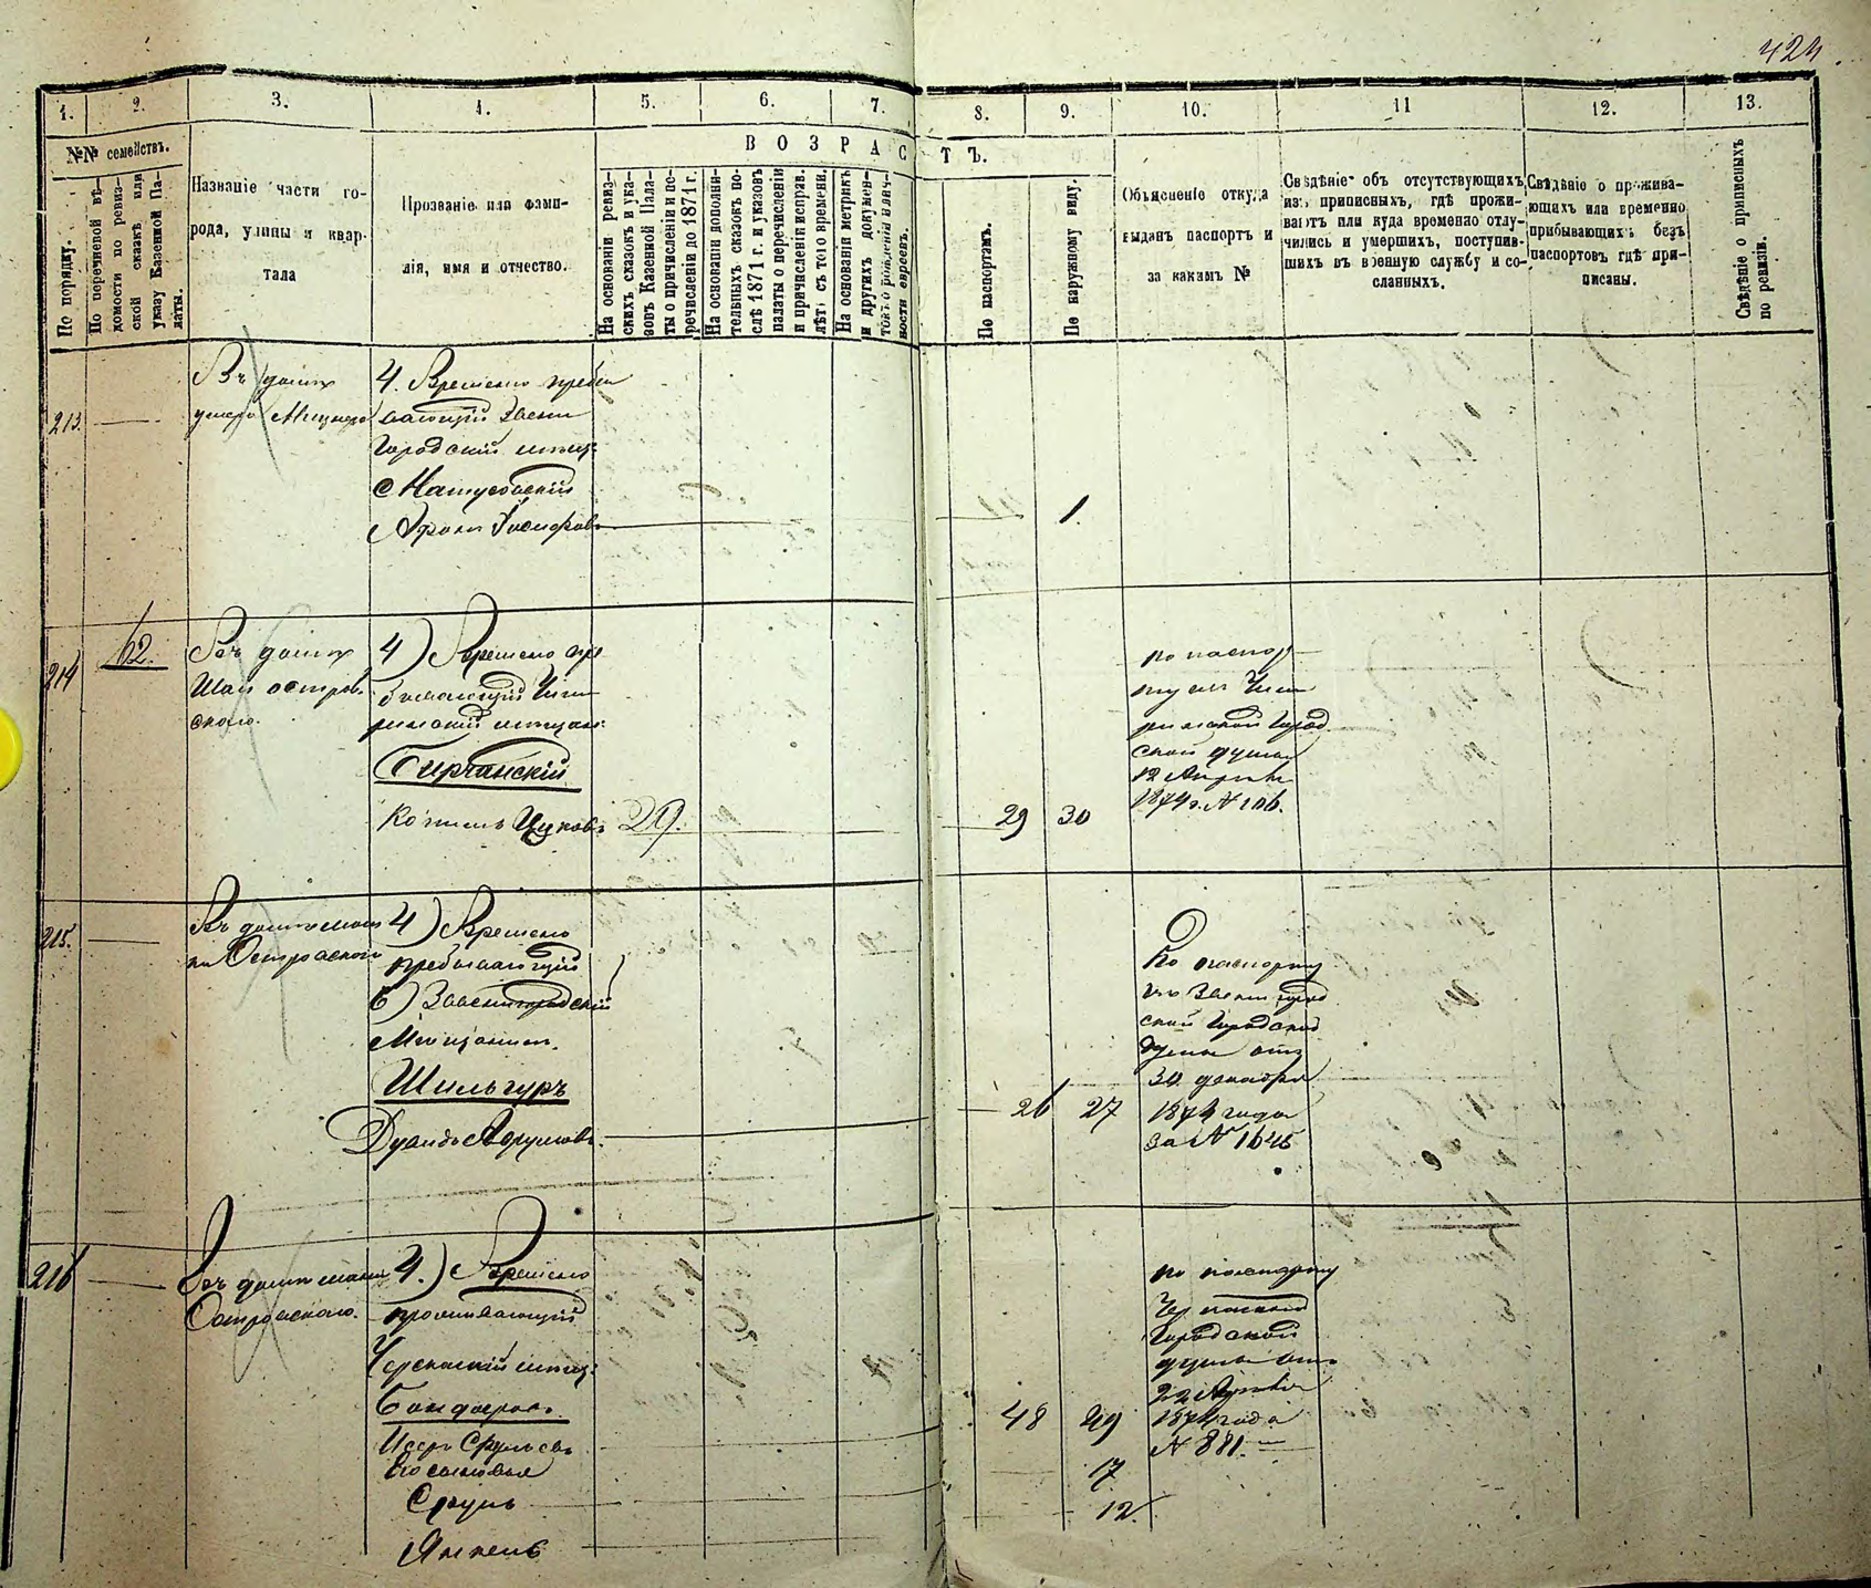 424
1. 2. 3. 4. 5. 6. 7. 8. 9. 10. 11 12. 13.
№№ семействъ.
В О З Р А С Т Ъ.
По порядку.
По перечневой вѣ-
домости по ревиз-
ской сказкѣ или
указу Казенной Па-
латы.
Названіе части го-
рода, улицы и квар-
тала
Прозваніе или фами-
лія, имя и отчество.
На основаніи ревиз-
скихъ сказокъ и ука-
зовъ Казенной Пала-
ты о причисленіи и пе-
речисленіи до 1871 г.
На основаніи дополни-
тельныхъ сказокъ по-
слѣ 1871 г. и указовъ
палаты о перечисленіи
и причисленіи исправ.
лѣтъ съ того времени.
На основаніи метрикъ
и другихъ докумен-
товъ о рожденіи и лич-
ности евреевъ.
По паспортамъ.
По наружному виду.
Объясненіе откуда
выданъ паспортъ и
за какимъ №
Свѣдѣніе объ отсутствующихъ
изъ приписныхъ, гдѣ прожи-
ваютъ или куда временно отлу-
чились и умершихъ, поступив-
шихъ въ военную службу и со-
сланныхъ.
Свѣдѣніе о прожива-
ющихъ или временно
прибывающихъ безъ
паспортовъ гдѣ при-
писаны.
Свѣдѣніе о приписныхъ
по ревизіи.
213.
Въ домѣ
4. Временно пребы
вающій Звени
городскій мѣщ:
Матусовскій
1.
214
62.
Въ домѣ
Шаи остров
ского.
4) Временно про
живающій Чиги
ринскій мѣщан:
Бирчанскій
29.
29 30
по паспор
ту изъ Чиги
ринской город
ской думы
12 Апрѣля
1874 г. № 106.
215.
Въ домѣ мош
ки Островского
4) Временно
пребывающій
б) Звенигородскій
Мѣщанин.
Шильгуръ
26 27
По паспорту
изъ Звени город
ской Городской
думы отъ
30 декабря
1874 года
за № 1645
216
Въ домѣ мошки
Островского.
4.) Временно
проживающій
Черкаскій мѣщ:
Бондаревъ.
Сруль
Янкель
48 49
17
12.
по паспорту
Черкаской
Городской
думы отъ
22 Апрѣля
1874 года
№ 881.